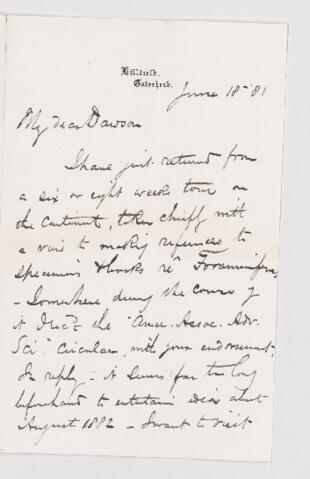 Hillfield,
Gateshead.
June 18 '81
My dear Dawson
I have just returned from
a six or eight weeks tour on
the Continent, taken chiefly with
a view to making references to
specimens & books re Foraminifera,
- Somewhere during the course of
it I recd the "Amer. Assoc. Adv.
Sci." Circular, with your endorsement.
In reply :- it seems far too long
beforehand to entertain ideas about
August 1882 - I want to visit